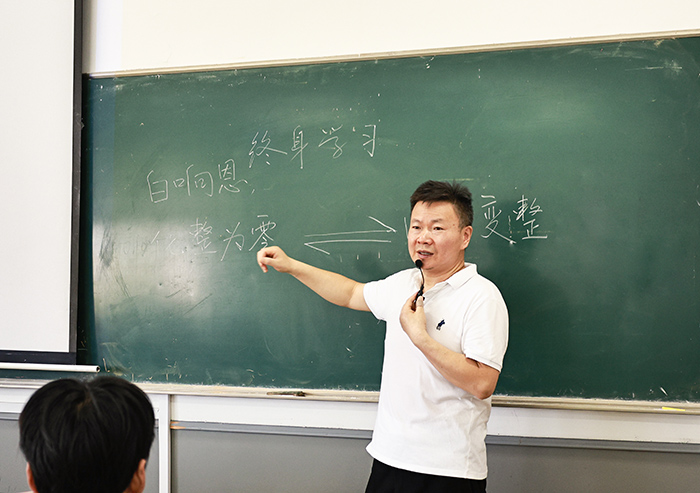 终身学习
白响恩，
整为零 ⇌ 变整